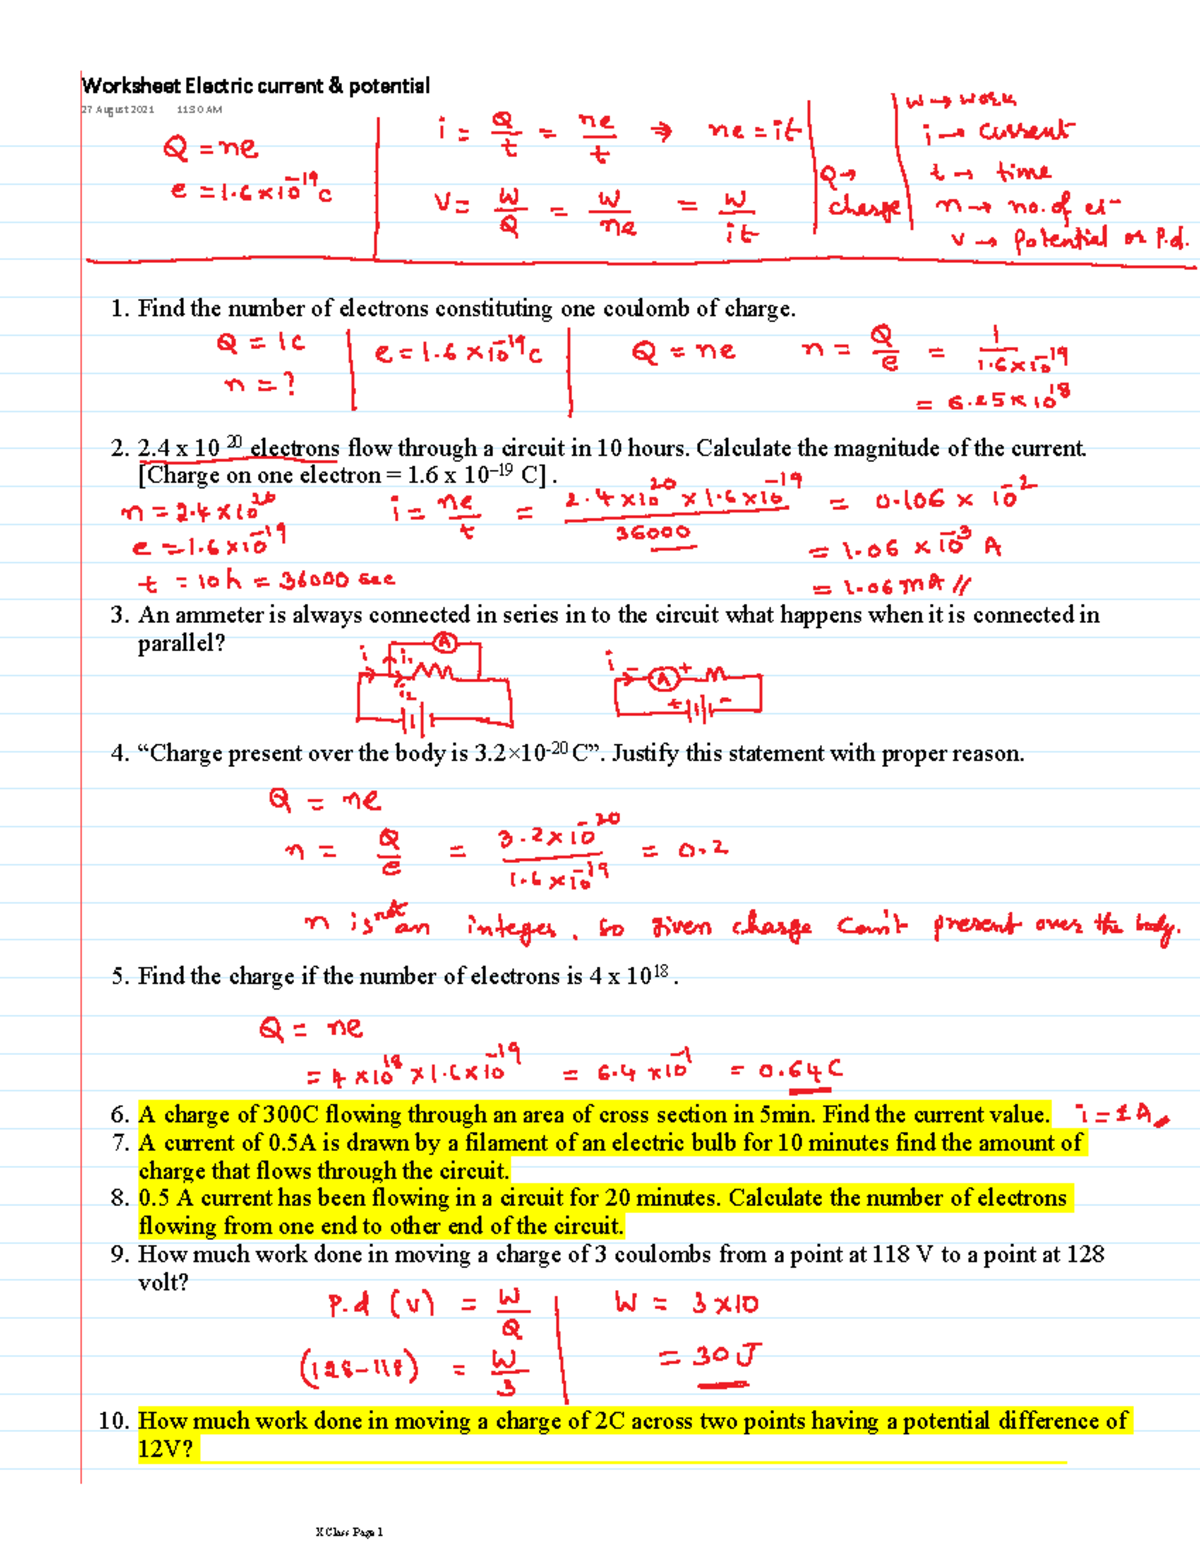 Worksheet Electric current & potential
27 August 2021 11:30 AM
Q = ne
e = 1.6 x 10⁻¹⁹ c
i = Q/t = ne/t ⇒ ne = it
V = W/Q = W/ne = W/it
Q → charge
W → work
i → current
t → time
n → no. of el⁻
v → potential or P.d.
1. Find the number of electrons constituting one coulomb of charge.
Q = 1c
n = ?
e = 1.6 x 10⁻¹⁹ c
Q = ne
n = Q/e = 1/1.6 x 10⁻¹⁹
= 6.25 x 10¹⁸
2. 2.4 x 10 ²⁰ electrons flow through a circuit in 10 hours. Calculate the magnitude of the current.
[Charge on one electron = 1.6 x 10⁻¹⁹ C] .
n = 2.4 x 10²⁰
e = 1.6 x 10⁻¹⁹
t = 10h = 36000 sec
i = ne/t = 2.4 x 10²⁰ x 1.6 x 10⁻¹⁹/36000 = 0.106 x 10⁻²
= 1.06 x 10⁻³ A
= 1.06 mA //
3. An ammeter is always connected in series in to the circuit what happens when it is connected in
parallel?
i i₁ A i₂
i - A + + -
4. “Charge present over the body is 3.2×10⁻²⁰ C”. Justify this statement with proper reason.
Q = ne
n = Q/e = 3.2 x 10⁻²⁰/1.6 x 10⁻¹⁹ = 0.2
n is not an integer. so given charge can't present over the body.
5. Find the charge if the number of electrons is 4 x 10¹⁸ .
Q = ne
= 4 x 10¹⁸ x 1.6 x 10⁻¹⁹ = 6.4 x 10⁻¹ = 0.64 C
6. A charge of 300C flowing through an area of cross section in 5min. Find the current value. i = 1 A
7. A current of 0.5A is drawn by a filament of an electric bulb for 10 minutes find the amount of
charge that flows through the circuit.
8. 0.5 A current has been flowing in a circuit for 20 minutes. Calculate the number of electrons
flowing from one end to other end of the circuit.
9. How much work done in moving a charge of 3 coulombs from a point at 118 V to a point at 128
volt?
P.d (v) = W/Q
(128-118) = W/3
W = 3 x 10
= 30 J
10. How much work done in moving a charge of 2C across two points having a potential difference of
12V?
X Class Page 1